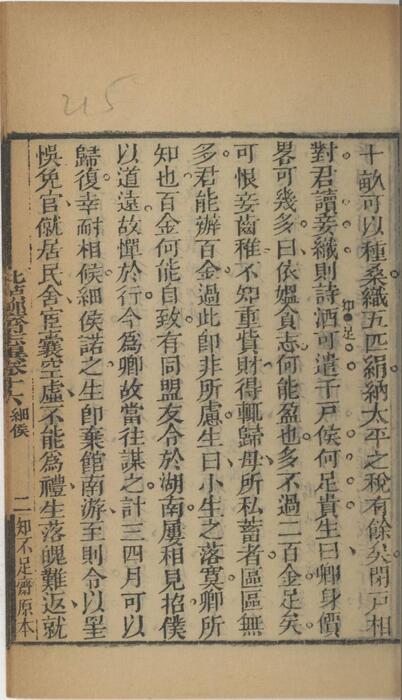 十畝可以種桑織五匹絹納太平之稅有餘矣閉戶相
對君讀妾織則詩酒可遣千戶侯何足貴生曰卿身價
知足
畧可幾多曰依媼貪志何能盈也多不過二百金足矣
可恨妾齒稚不知重貲財得輒歸母所私蓄者區區無
多君能辦百金過此即非所慮生曰小生之落寞卿所
知也百金何能自致有同盟友令於湖南屢相見招僕
以道遠故憚於行今爲卿故當往謀之計三四月可以
歸復幸耐相候細侯諾之生即棄館南游至則令以罣
悞免官僦居民舍宦囊空虛不能爲禮生落魄難返就
十六 細侯
二
知不足齋原本
215